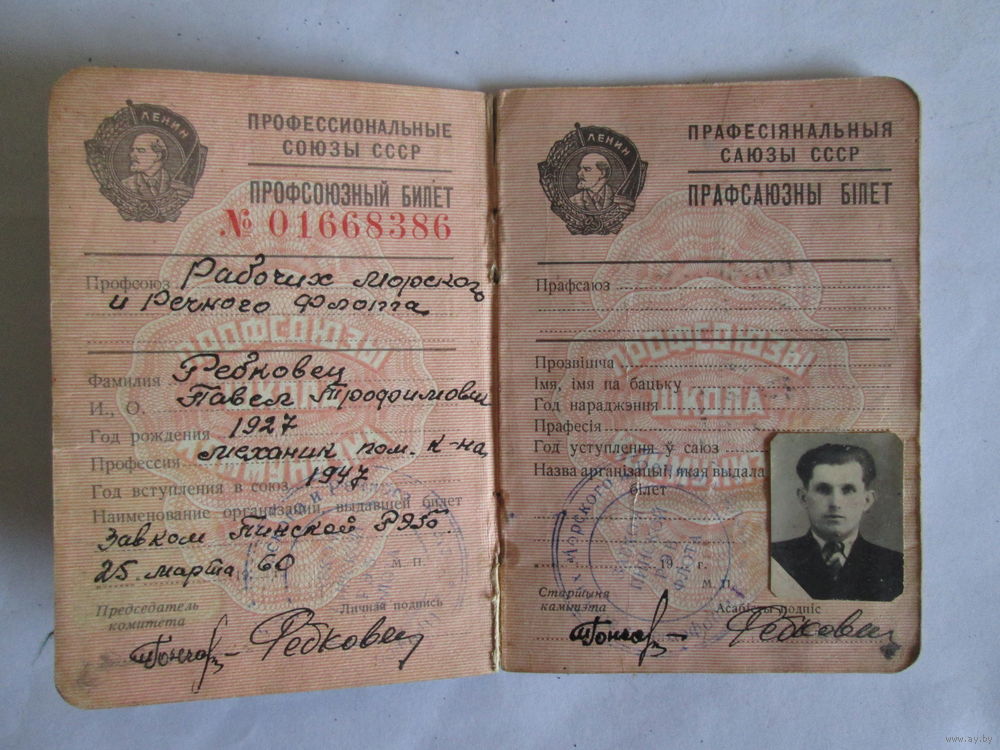 ЛЕНИН
ПРОФЕССИОНАЛЬНЫЕ
СОЮЗЫ СССР
ПРОФСОЮЗНЫЙ БИЛЕТ
№ 01668386
Профсоюз Рабочих морского
и Речного Флота
ПРОФСОЮЗЫ
ШКОЛА
КОММУНИЗМА
Фамилия Ребковец
И., О. Павел Трофимович
Год рождения 1927
Профессия механик пом. к-на
Год вступления в союз 1947
Наименование организации, выдавшей билет
Завком Пинской РЭБ
25 марта 60
М. П.
Председатель
комитета
Личная подпись
Ребковец
ЛЕНИН
ПРАФЕСІЯНАЛЬНЫЯ
САЮЗЫ СССР
ПРАФСАЮЗНЫ БІЛЕТ
Прафсаюз
ПРОФСОЮЗЫ
ШКОЛА
Прозвішча
Імя, імя па бацьку
Год нараджэння
Прафесія
Год уступлення ў саюз
Назва арганізацыі, якая выдала
білет
19 г.
М. П.
Старшыня
камітэта
Асабісты подпіс
Ребковец
www.ay.by